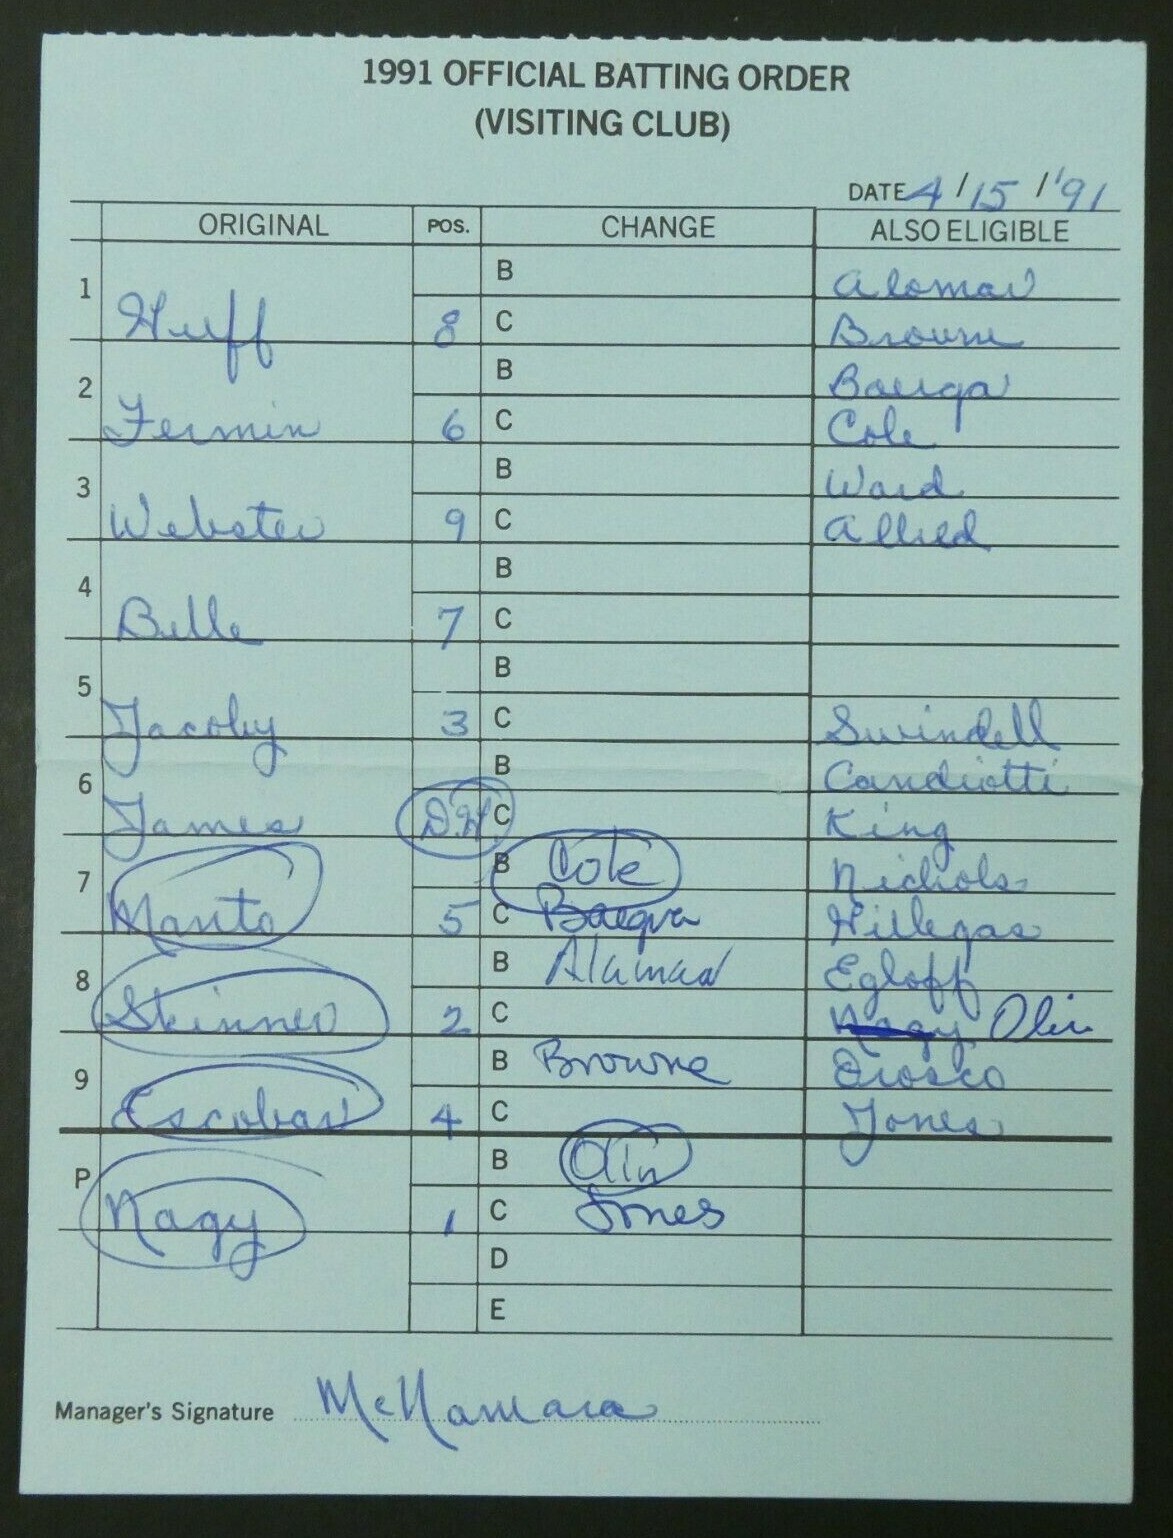 1991 OFFICIAL BATTING ORDER
(VISITING CLUB)
DATE 4/15/'91
ORIGINAL POS. CHANGE ALSO ELIGIBLE
1 B Alomar
Huff 8 C Browne
2 B Baerga
Fermin 6 C Cole
3 B Ward
Webster 9 C Allred
4 B
Belle 7 C
5 B
Jacoby 3 C Swindell
6 B Candiotti
James D.H. C King
7 B Cole Nichols
Manto 5 C Baerga Hillegas
8 B Alamar Egloff
Skinner 2 C Nagy Olin
9 B Browne Orosco
Escobar 4 C Jones
P B Olin
Nagy 1 C Jones
D
E
Manager's Signature McNamara